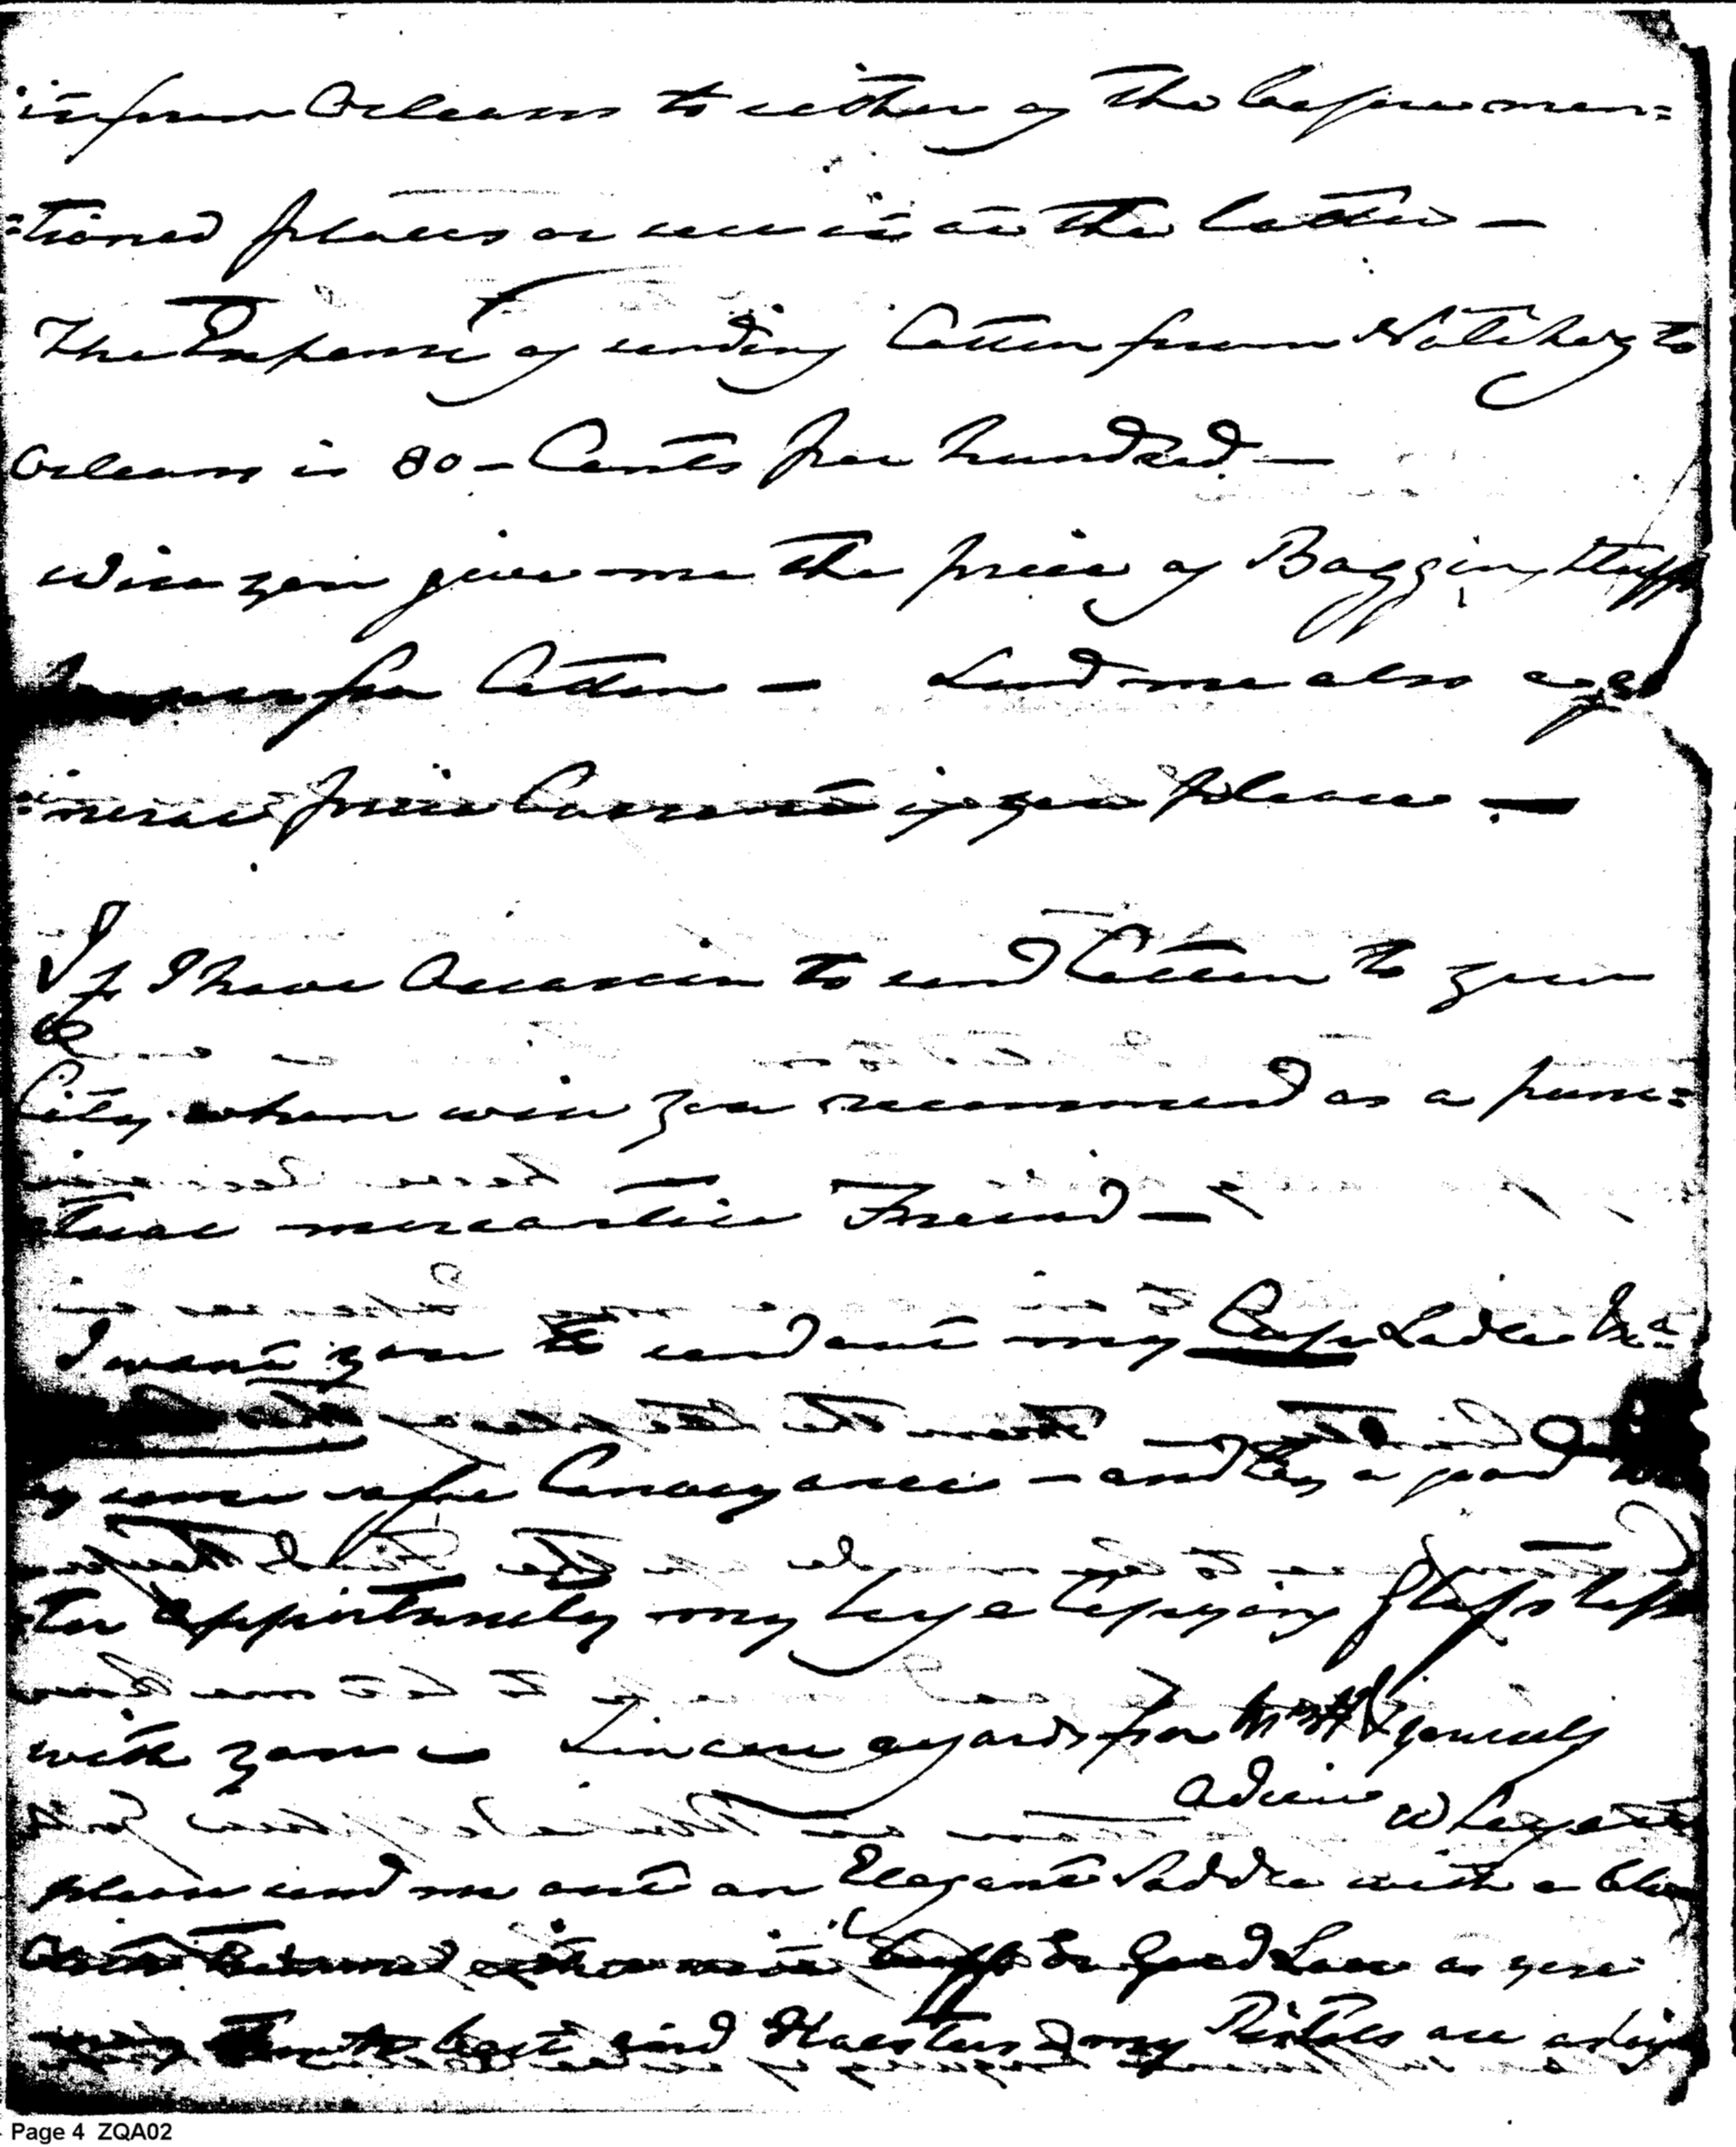 is from Orleans to either of the before men=
=tioned places as well as in the latter —
The Expense of sending Cotton from Natchez to
Orleans is 80 - Cents per hundred —
Will you give me the price of Bagging Stuff
for Cotton — Send me also a ge
=neral price Current if you please —
If I have Occasion to send Cotton to your
City whom will you recommend as a punc=
=tual mercantile Friend —
I want you to send out my Cup Ladle &ca
by some safe Conveyance — and by a good
opportunity my large Copying
with you — Sincere regards for Mrs H & yourself
adieu
please send me out an Elegant Saddle with a blue
Cloth or Good Lace as you
best kind Holsters & my Pistols are a large
Page 4 ZQA02